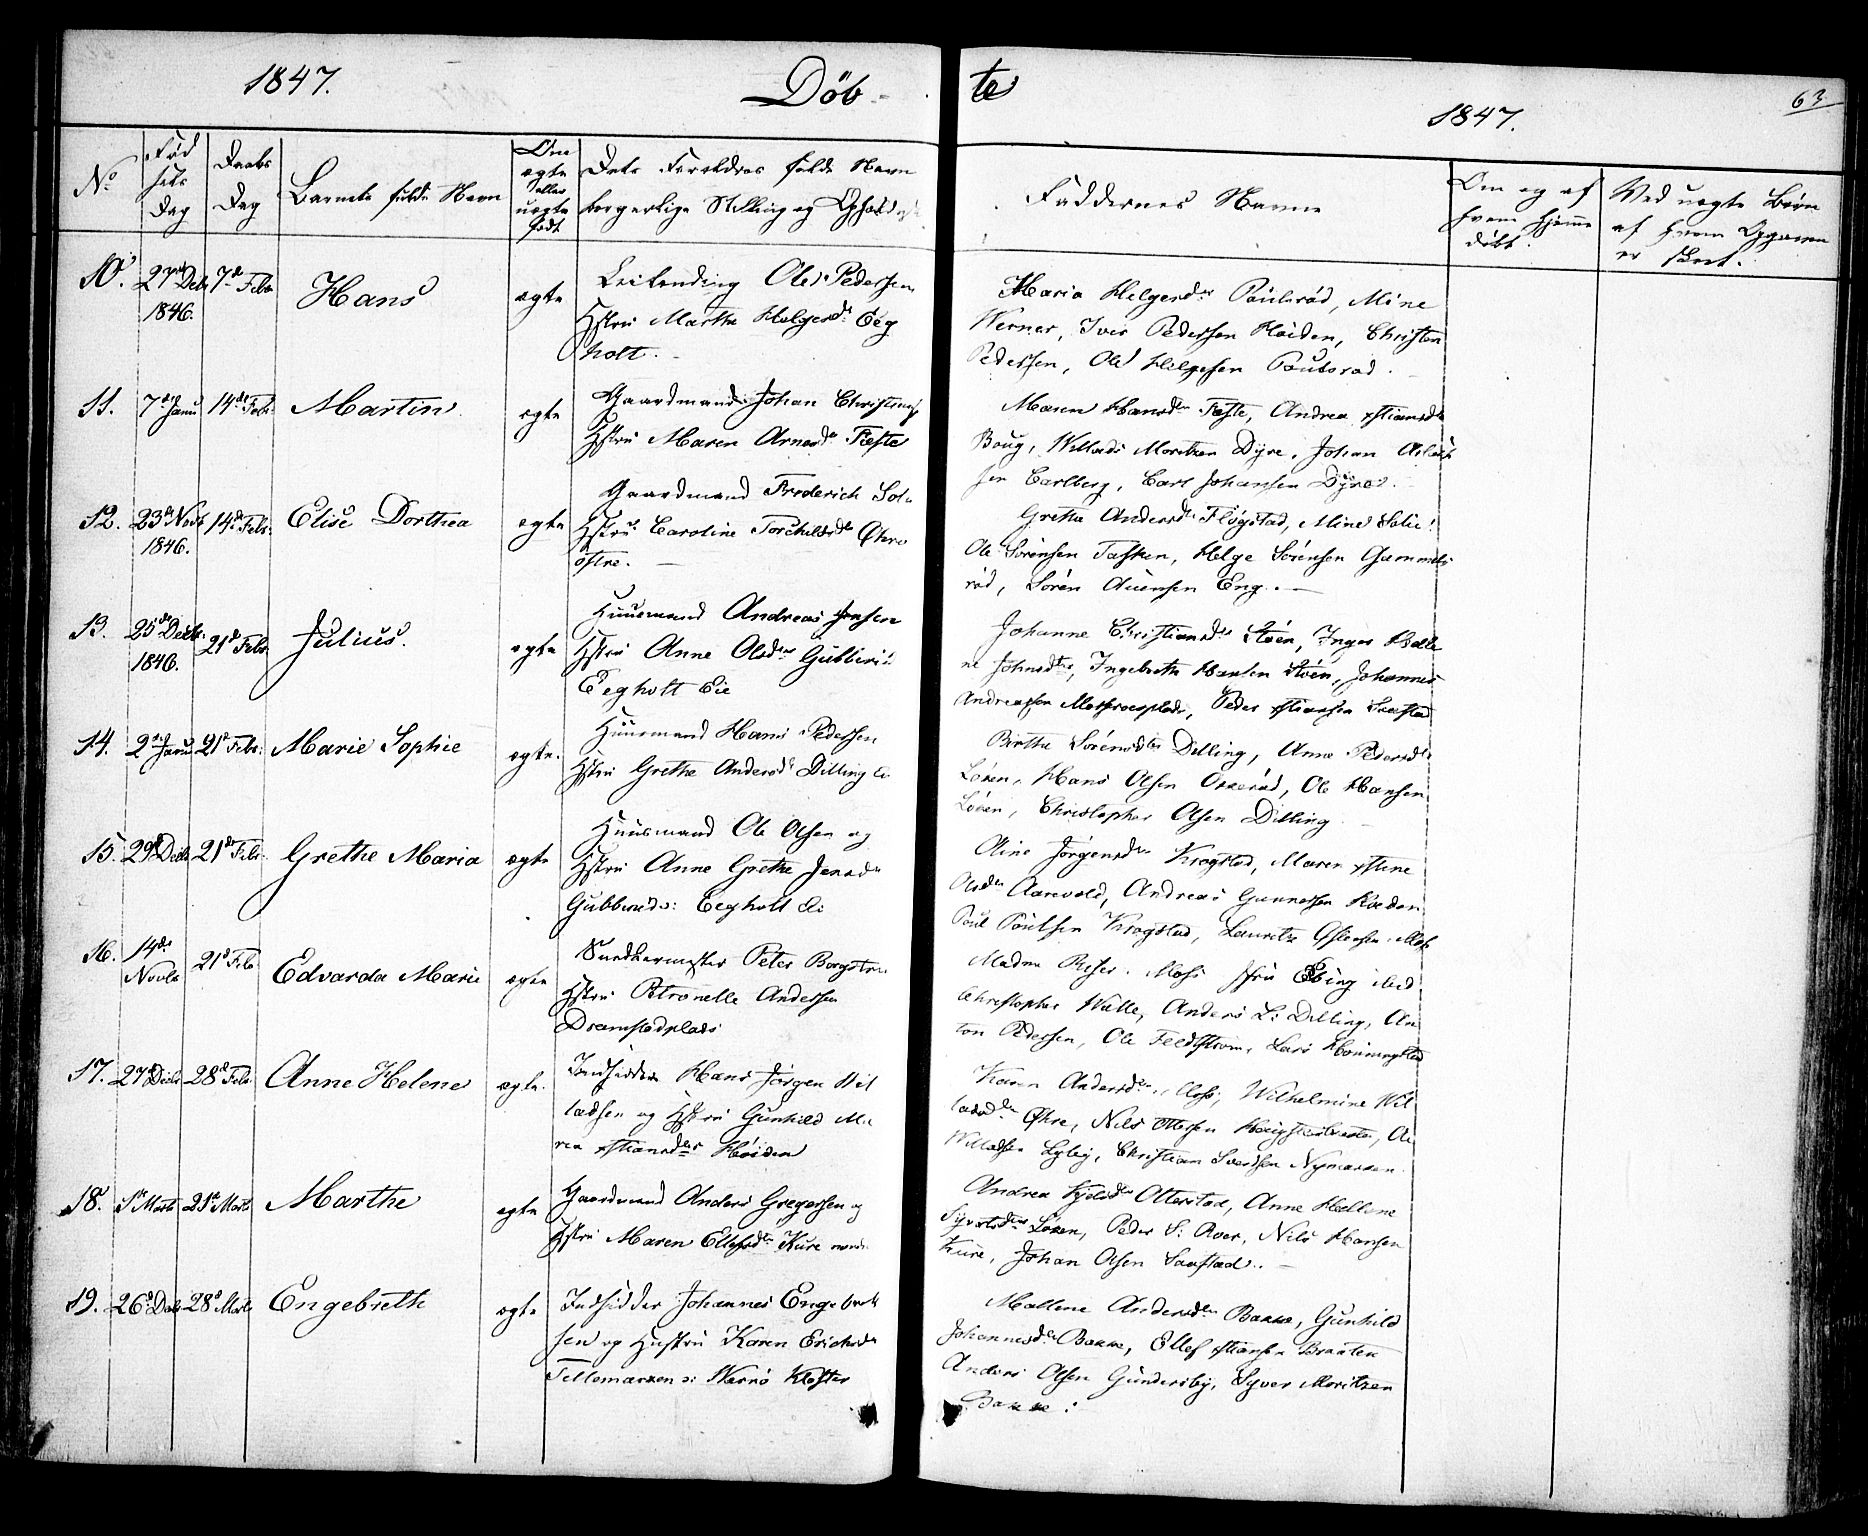 1847.
Döb-
te
63
1847.
No
Fød
sels
Dag
Daabs
Dag
Barnets fulde Navn
Om
ægte
eller
uægte
født
Dets Forældres fulde Navn
borgerlige Stilling og Ophold
Faddernes Navne
Om og af
hvem hjemme
døbt.
Ved uægte Børn
af hvem Opgaven
er skeet.
10. 27de Decbr 7de Febr Hans ægte Leilending Ole Pedersen
1846. Hstru Marthe Helgesdr Eeg
holt.
Maria Helgesdr Paulsrød, Mine
Werner, Iver Pedersen Høiden, Christen
Pedersen, Ole Helgesen Paulsrød.
11. 7de Janu 14de Febr. Martin ægte Gaardmand Johan Christians
Hstru Maren Arnesdr Fæste
Maren Hansdr Fæste, Andrea xstiansdr
Boug, Willads Moritzen Dyre, Johan
sen Carlberg, Carl Johansen Dyre.
12. 23de Novb 14de Febr. Elise Dorthea ægte Gaardmand Frederich Solie
1846. Hstru Caroline Torchildsdr Øhre
östre.
Grethe Andersdr Flögstad, Mine Solie
Ole Sörensen Tasken, Helge Sörensen Gammels
röd, Sören Auensen Eng.
13. 25de Decbr. 21de Febr Julius. ægte Huusmand Andreas Jensen
1846. Hstru Anne Olsdr Gubberöd
Eegholt Eie
Johanne Christiansdr Stöen, Inger Helle
ne Johnsdtr, Ingebreth Hansen Stöen, Johannes
Andreassen Mosseroesplads, Peder xstiansen Saastad
14. 2de Janu 21de Febr. Marie Sophie ægte. Huusmand Hans Pedersen
Hstru Grethe Andersdr Dilling
Birthe Sörensdtr Dilling, Anne Pedersdtr
Löken, Hans Olsen Oxeröd, Ole Hansen
Löken, Christopher Olsen Dilling
15. 29de Decbr 21de Febr. Grethe Maria ægte Huusmand Ole Olsen og
Hstru Anne Grethe Jensdr
Gubberöd Eegholt Ei
Oline Jörgensdr Krogstad, Maren xstine
Olsdr Aarvold, Andreas Gunnersen Röeden
Poul Poulsen Krogstad, Lauritz Moss
16. 14de 21de Feb Edvarda Marie ægte Peter Borgström
Novbr Hstru Petronelle Andersen
Dramstadplads
Madme Reser. Moss, Ebing ibid
Christopher Walle, Anders L: Dilling, An
ton Pedersen, Ole Feldström, Lars
17. 27de Decbr 28de Febr. Anne Helene ægte. Indsidder Hans Jörgen Wil
ladsen og Hstru Gunhild Ma
ria xstiansdtr Höiden
Karen Andersdr. Moss, Wilhelmine Wil
ladsdtr Øhre, Nils Ottersen
Willadsen Lyby, Christian Svendsen Nymarken.
18. 1ste Marts 21de Marts Marthe ægte Gaardmand Anders Gregersen og
Hstru Maren Ellefsdtr Kure nordr
Andrea Otterstad, Anne Hellene
Syvertsdtr Löken, Peder S: Roer, Nils Hansen
Kure, Johan Olsen Saastad.
19. 26de Decbr 28de Marts Engebreth ægte Indsidder Johannes Engebreth
sen og Hustru Karen Erichsdr
Tellemarken : Wernö Kloster
Mallene Andersdtr Bakke, Gunhild
Johannesdr Bakke, Ellef xstiansen Braaten
Anders Olsen Gundersby, Syver Moritzen
Bakke.